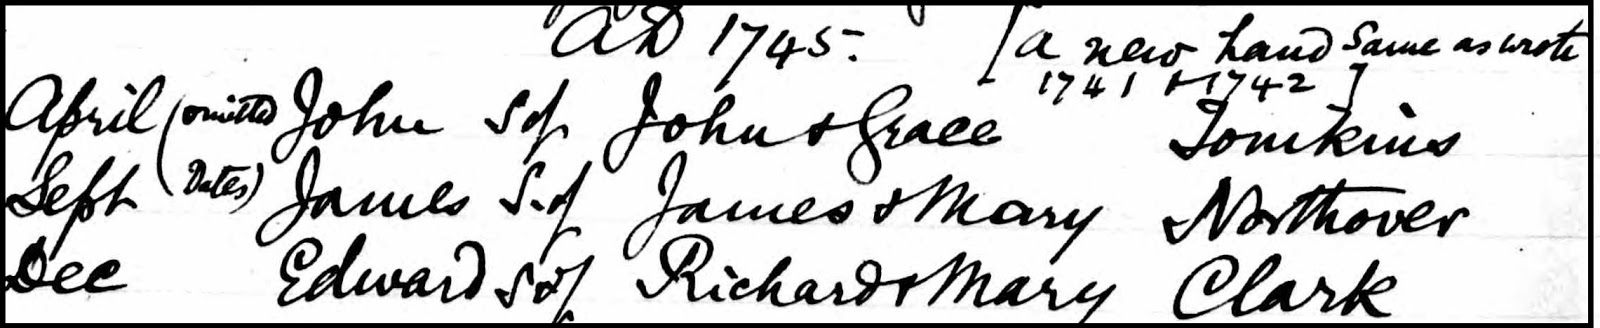 AD 1745. [a new hand same as wrote
1741 + 1742]
April (omitted John S of John & Grace Tomkins
Sept Dates) James S. of James & Mary Northover
Dec Edward S of Richard & Mary Clark